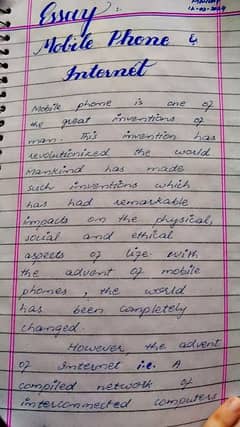 Essay:
Monday
12-02-2024
Mobile Phone &
Internet
Mobile phone is one of
the great inventions of
man. This invention has
revolutionized the world
Mankind has made
such inventions which
has had remarkable
impacts on the physical,
social and ethical
aspects of life. With
the advent of mobile
phones, the world
has been completely
changed.
However, the advent
of Internet i.e. A
compiled network of
interconnected computers